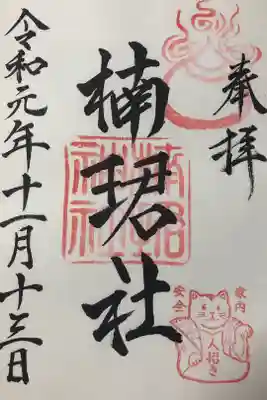 奉拝
楠珺社
楠珺社
家内
安全
人招き
令和元年十一月十三日